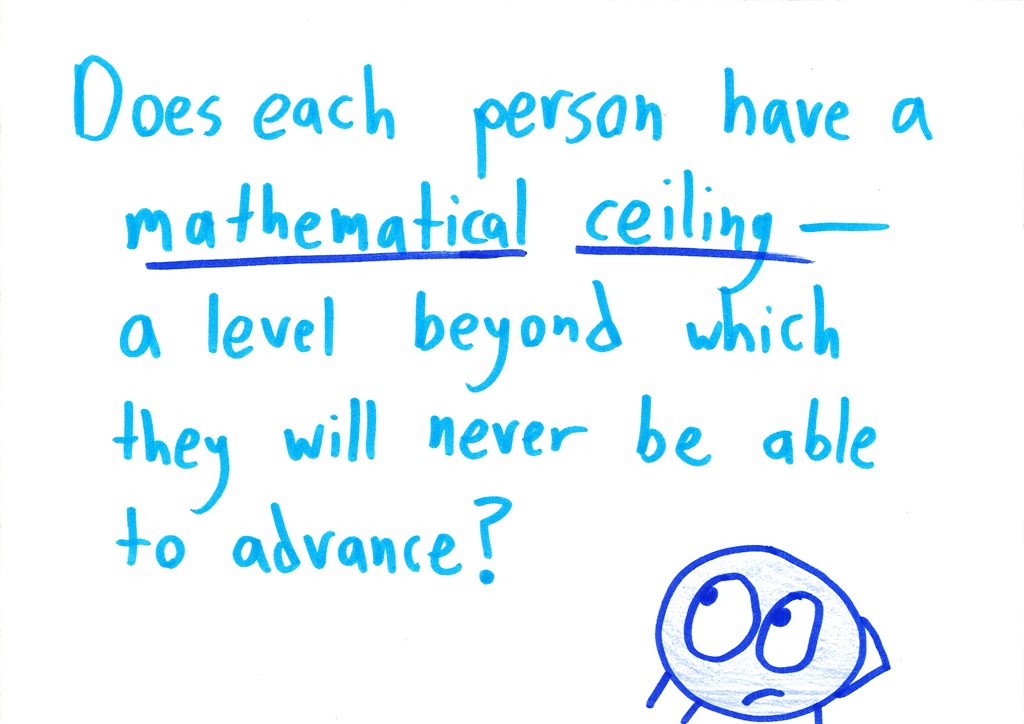 Does each person have a
mathematical ceiling —
a level beyond which
they will never be able
to advance?